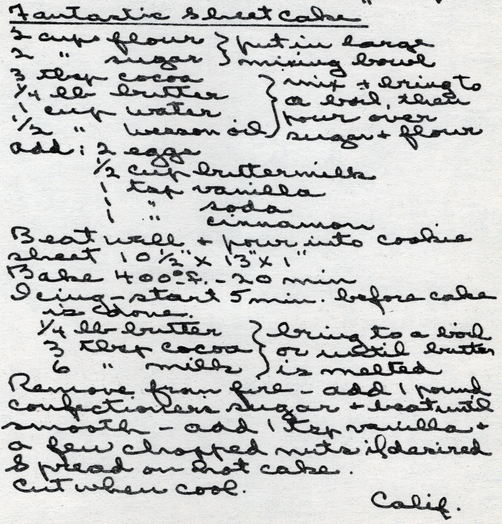 Fantastic Sheet cake
2 cups flour } put in large
2 " sugar } mixing bowl
3 tbsp cocoa } mix + bring to
1/4 lb butter a boil, then
1 cup water pour over
1/2 " wesson oil sugar + flour
add: 2 eggs
1/2 cup buttermilk
1 tsp vanilla
1 " soda
1 " cinnamon
Beat well + pour into cookie
sheet 10 1/2" x 13" x 1"
Bake 400° F. - 20 min
Icing - start 5 min. before cake
is done.
1/4 lb butter } bring to a boil
3 tbsp cocoa or until butter
6 " milk is melted
Remove from fire - add 1 pound
confectioners sugar + beat until
smooth - add 1 tsp vanilla +
a few chopped nuts if desired
Spread on hot cake.
Cut when cool.
Calif.